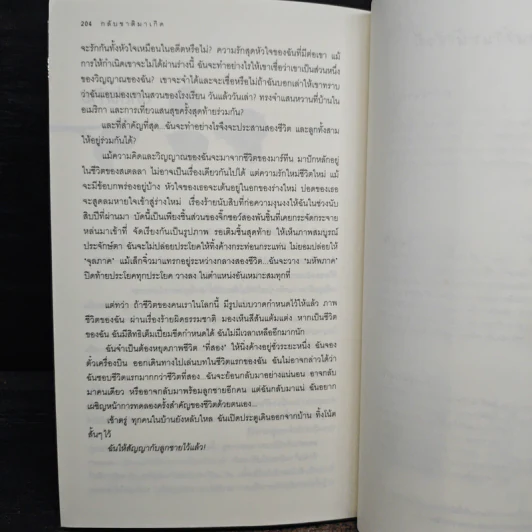 204 กลับชาติมาเกิด
จะรักกันทั้งหัวใจเหมือนในอดีตหรือไม่? ความรักสุดหัวใจของฉันที่มีต่อเขา แม้
การให้กำเนิดเขาจะไม่ได้ผ่านร่างนี้ ฉันจะทำอย่างไรให้เขาเชื่อว่าเขาเป็นส่วนหนึ่ง
ของวิญญาณของฉัน? เขาจะจำได้และจะเชื่อหรือไม่ถ้าฉันบอกเล่าให้เขาทราบ
ว่าฉันแอบมองเขาในสวนของโรงเรียน วันแล้ววันเล่า? ทรงจำแสนหวานที่บ้านใน
อเมริกา และการเที่ยวแสนสุขครั้งสุดท้ายร่วมกัน?
และที่สำคัญที่สุด...ฉันจะทำอย่างไรจึงจะประสานสองชีวิต และลูกทั้งสาม
ให้อยู่ร่วมกันได้?
แม้ความคิดและวิญญาณของฉันจะมาจากชีวิตของมาร์ทีน มาปักหลักอยู่
ในชีวิตของสเตลลา ไม่อาจเป็นเรื่องเดียวกันไปได้ แต่ความรักใหม่ชีวิตใหม่ แม้
จะมีข้อบกพร่องอยู่บ้าง หัวใจของเธอจะเต้นอยู่ในอกของร่างใหม่ ปอดของเธอ
จะสูดลมหายใจเข้าสู่ร่างใหม่ เรื่องร้ายนับสิบที่ก่อความงุนงงให้ฉันในช่วงนับ
สิบปีที่ผ่านมา บัดนี้เป็นเพียงชิ้นส่วนของจิ๊กซอว์สองพันชิ้นที่เคยกระจัดกระจาย
หล่นมาเข้าที่ จัดเรียงกันเป็นรูปภาพ รอเติมชิ้นสุดท้าย ให้เห็นภาพสมบูรณ์
ประจักษ์ตา ฉันจะไม่ปล่อยประโยคให้ทิ้งค้างกระท่อนกระแท่น ไม่ยอมปล่อยให้
"จุลภาค" แม้เล็กจิ๋วมาแทรกอยู่ระหว่างกลางสองชีวิต...ฉันจะวาง "มหัพภาค"
ปิดท้ายประโยคทุกประโยค วางลง ในตำแหน่งอันเหมาะสมทุกที่
แต่ทว่า ถ้าชีวิตของคนเราในโลกนี้ มีรูปแบบวาดกำหนดไว้ให้แล้ว ภาพ
ชีวิตของฉัน ผ่านเรื่องร้ายผิดธรรมชาติ มองเห็นสีสันแต้มแต่ง หากเป็นชีวิต
ของฉัน ฉันมีสิทธิเต็มเปี่ยมขีดกำหนดได้ ฉันไม่มีเวลาเหลืออีกมากนัก
ฉันจำเป็นต้องหยุดภาพชีวิต "ที่สอง" ให้นิ่งค้างอยู่ชั่วระยะหนึ่ง ฉันจอง
ตั๋วเครื่องบิน ออกเดินทางไปเล่นบทในชีวิตแรกของฉัน ฉันไม่อาจกล่าวได้ว่า
ฉันชอบชีวิตแรกมากกว่าชีวิตที่สอง...ฉันจะย้อนกลับมาอย่างแน่นอน อาจกลับ
มาคนเดียว หรืออาจกลับมาพร้อมลูกชายอีกคน แต่ฉันกลับมาแน่ ฉันอยาก
เผชิญหน้าการทดลองครั้งสำคัญของชีวิตด้วยตนเอง...
เช้าตรู่ ทุกคนในบ้านยังหลับใหล ฉันเปิดประตูเดินออกจากบ้าน ทิ้งโน้ต
สั้นๆ ไว้
ฉันให้สัญญากับลูกชายไว้แล้ว!